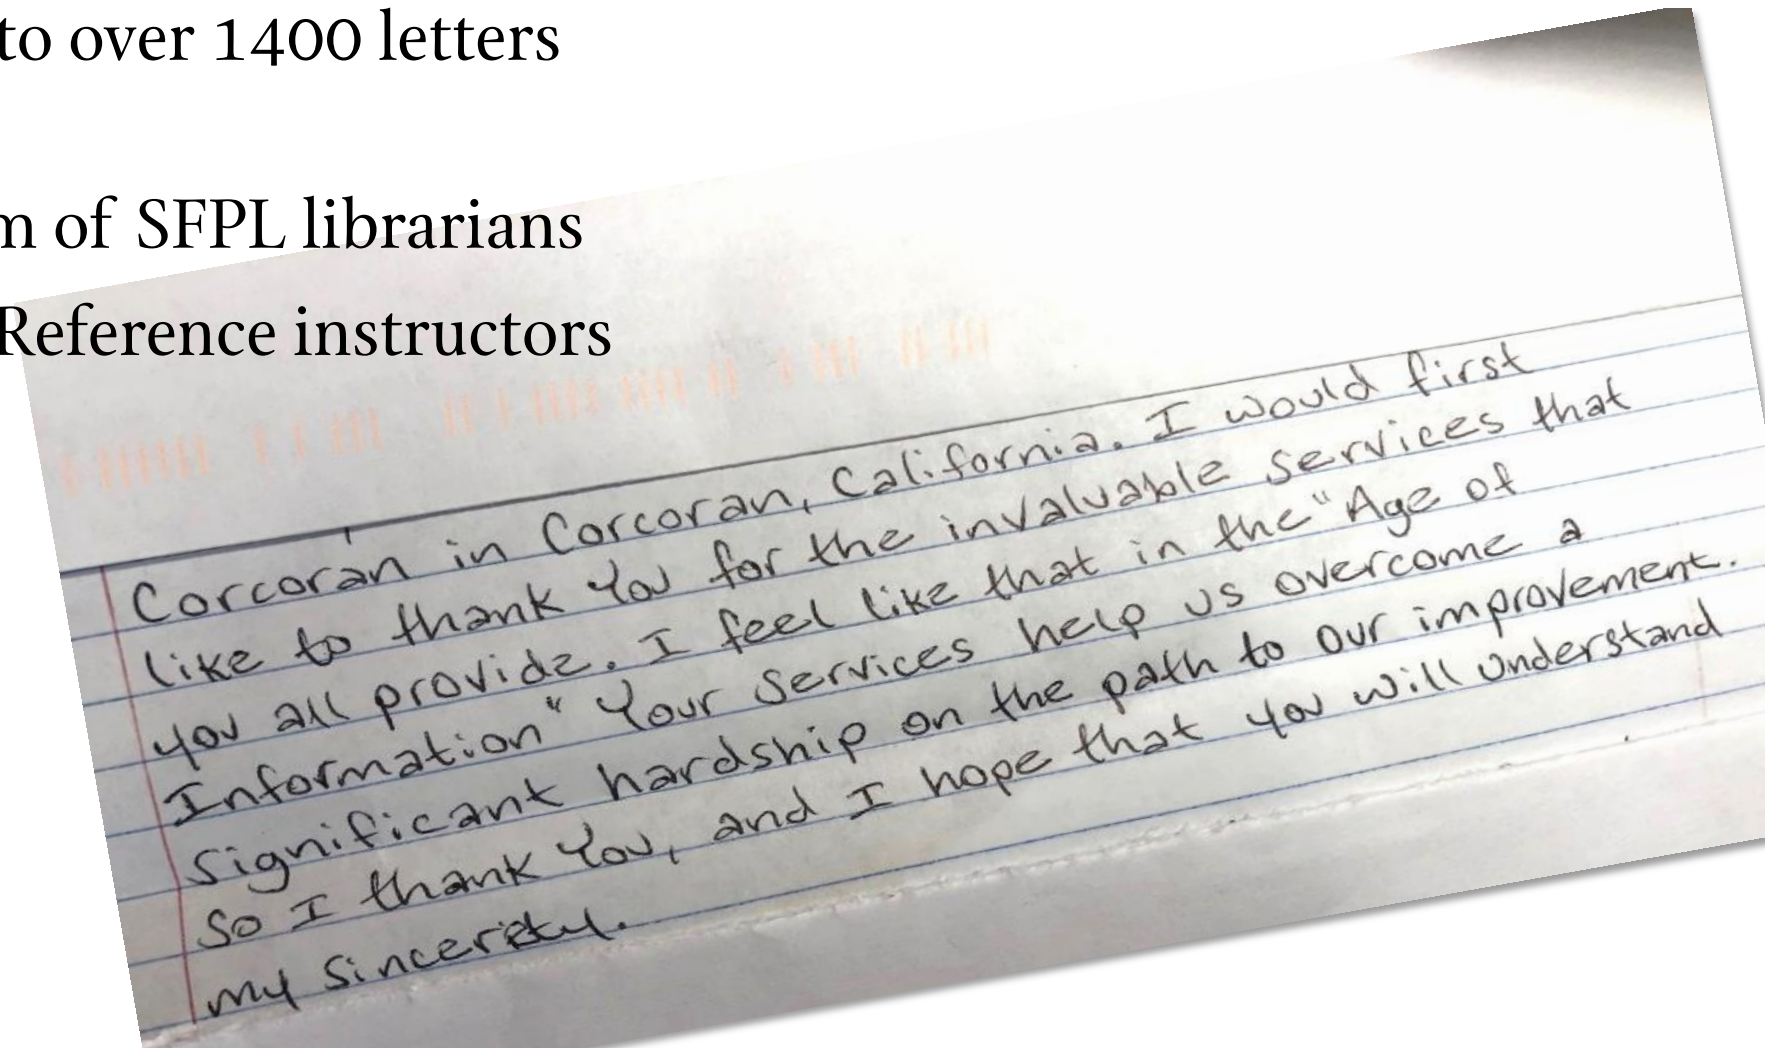 to over 1400 letters
m of SFPL librarians
Reference instructors
Corcoran in Corcoran, California. I would first
like to thank You for the invaluable services that
you all provide. I feel like that in the "Age of
Information" Your services help us overcome a
significant hardship on the path to our improvement.
So I thank You, and I hope that you will understand
my sincerity.